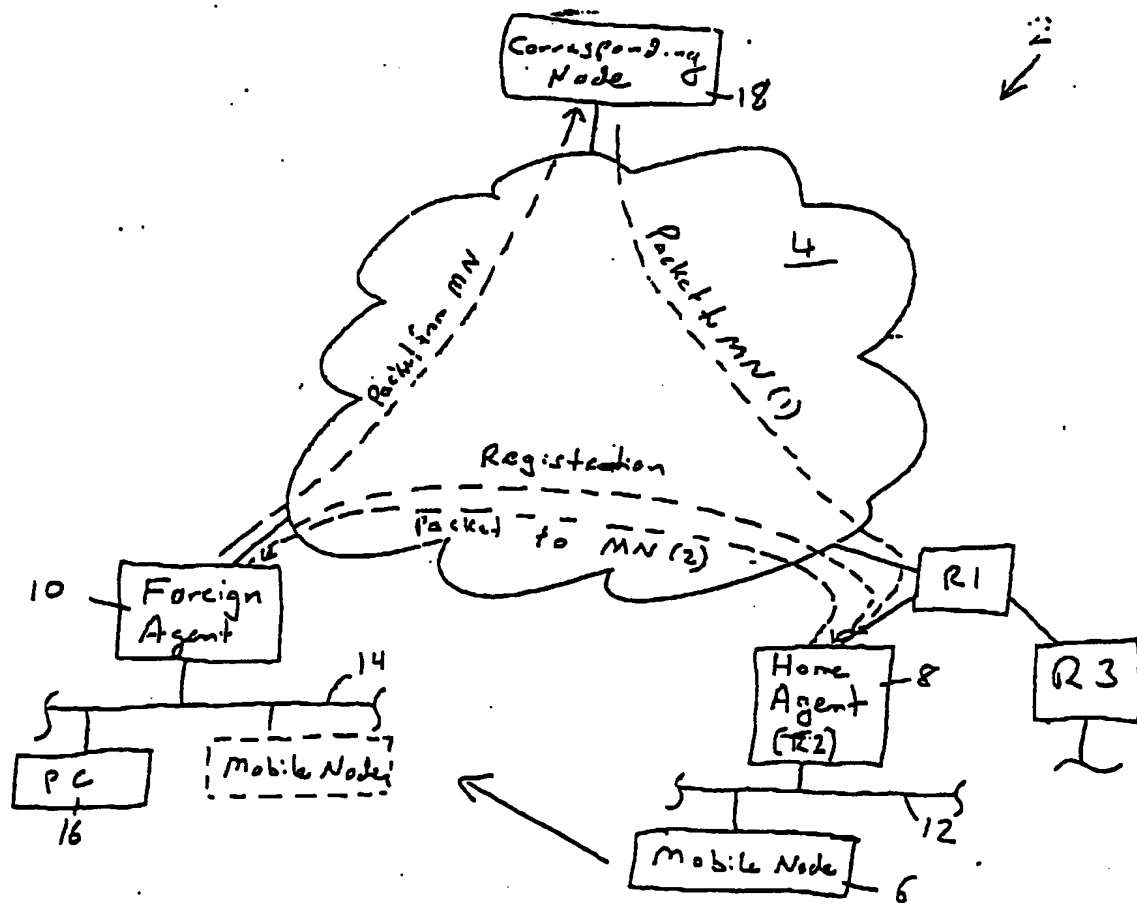 2
Corresponding
Node
18
4
Packet from MN
Packet to MN (1)
Registration
Packet to MN (2)
10
Foreign
Agent
R1
Home
Agent
(R2)
8
R3
14
Mobile Node
PC
16
12
Mobile Node
6